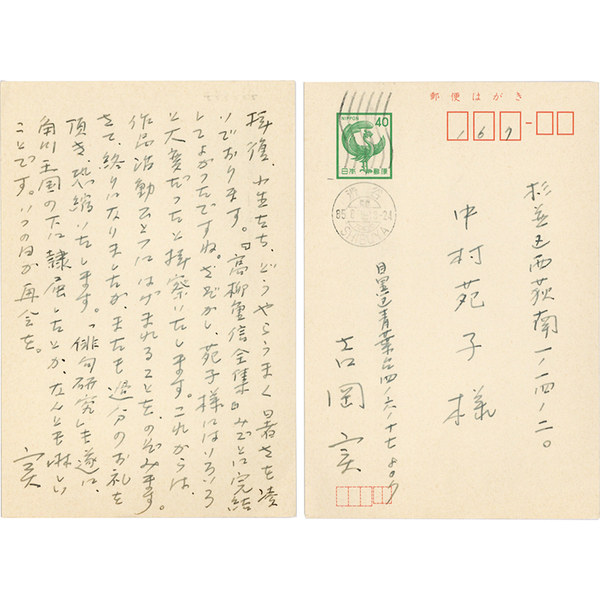 拝復、小生たち、どうやらうまく暑さを凌
いでおります。「高柳重信全集」みごとに完結
してよかったですね。さぞかし、苑子様にはいろいろ
と大変だったと拝察いたします。これからは、
作品活動にはげまれることをのぞみます。
さて、終りになりましたが、またも過分のお礼を
頂き、恐縮いたします。「俳句研究」も遂に、
角川王国の下に隷属したとか、なんとも淋しい
ことです。いつの日か再会を。
実
郵便はがき
167
NIPPON 40
日本郵便
85
SHIBUYA
杉並区西荻南一ノ一四ノ二〇
中村苑子様
目黒区青葉台四ノ六ノ十七
吉岡実